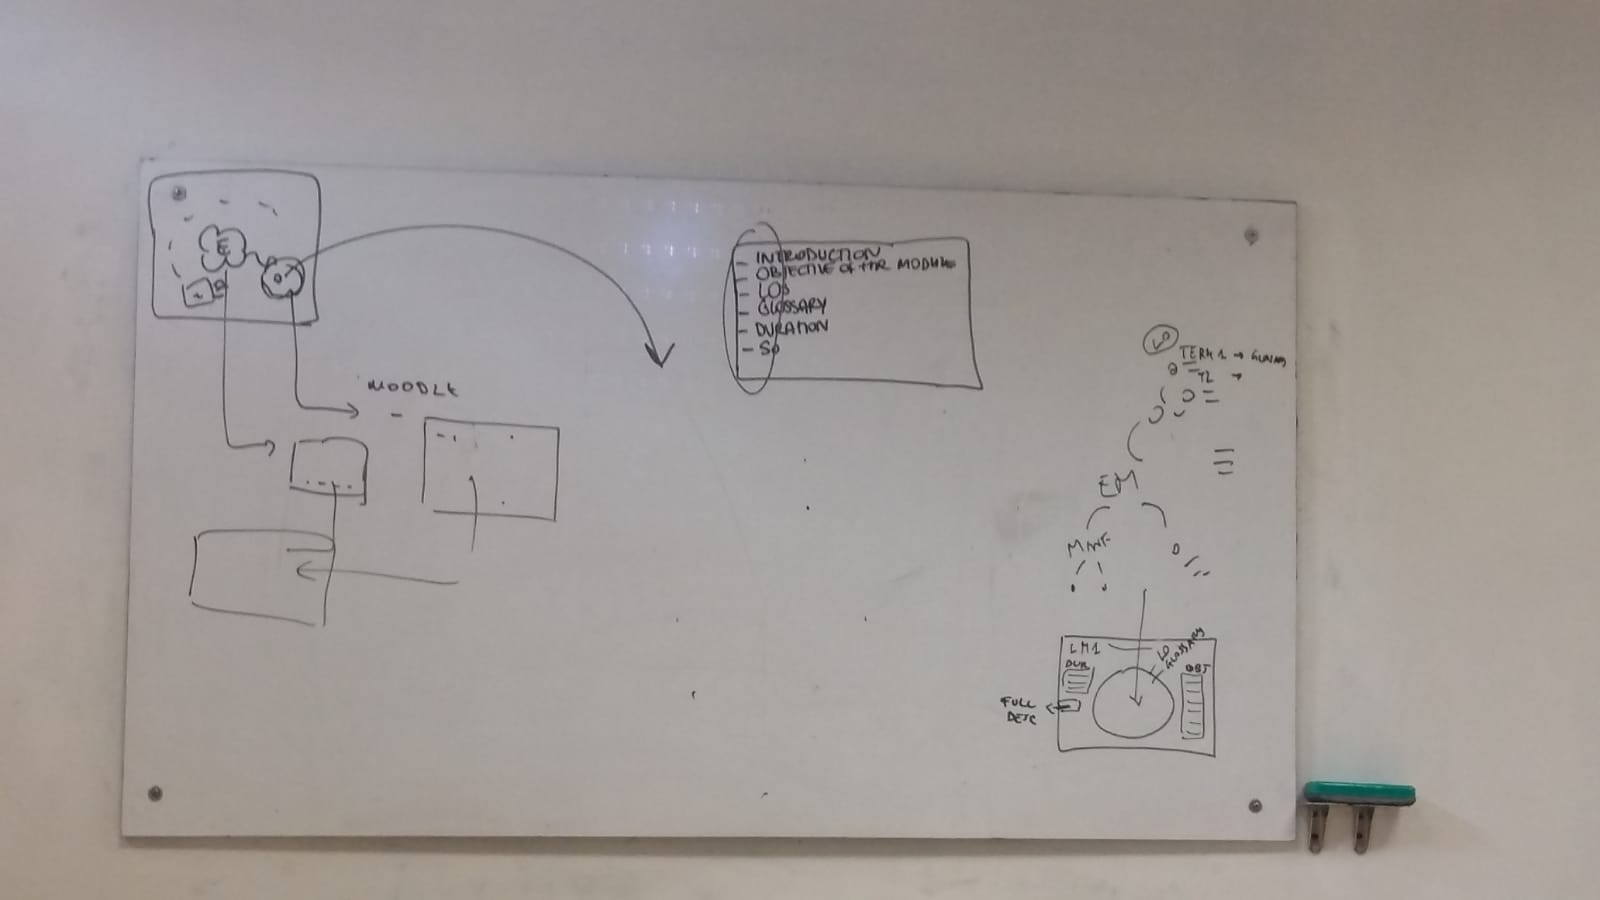 E
MOODLE
- INTRODUCTION
- OBJECTIVE OF THE MODULE
- LOS
- GLOSSARY
- DURATION
- SO
LO
TERM 1 →
T2 →
EM
LM1
DUR
LO
GLOSSARY
OBJ
FULL
DESC